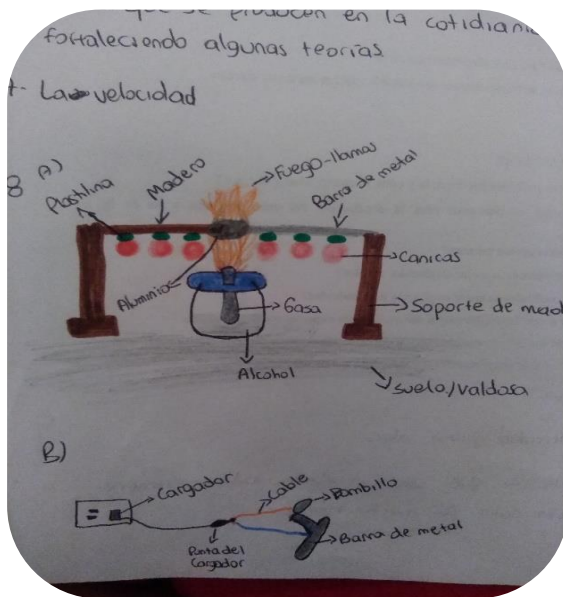 que se producen en la cotidiani
fortaleciendo algunas teorías
7- La velocidad
8 A)
Plastilina
Madero
Fuego-llamas
Barra de metal
Canicas
Aluminio
Gasa
Soporte de mad
Alcohol
suelo/valdosa
B)
Cargador
Cable
Bombillo
Barra de metal
Punta del
Cargador